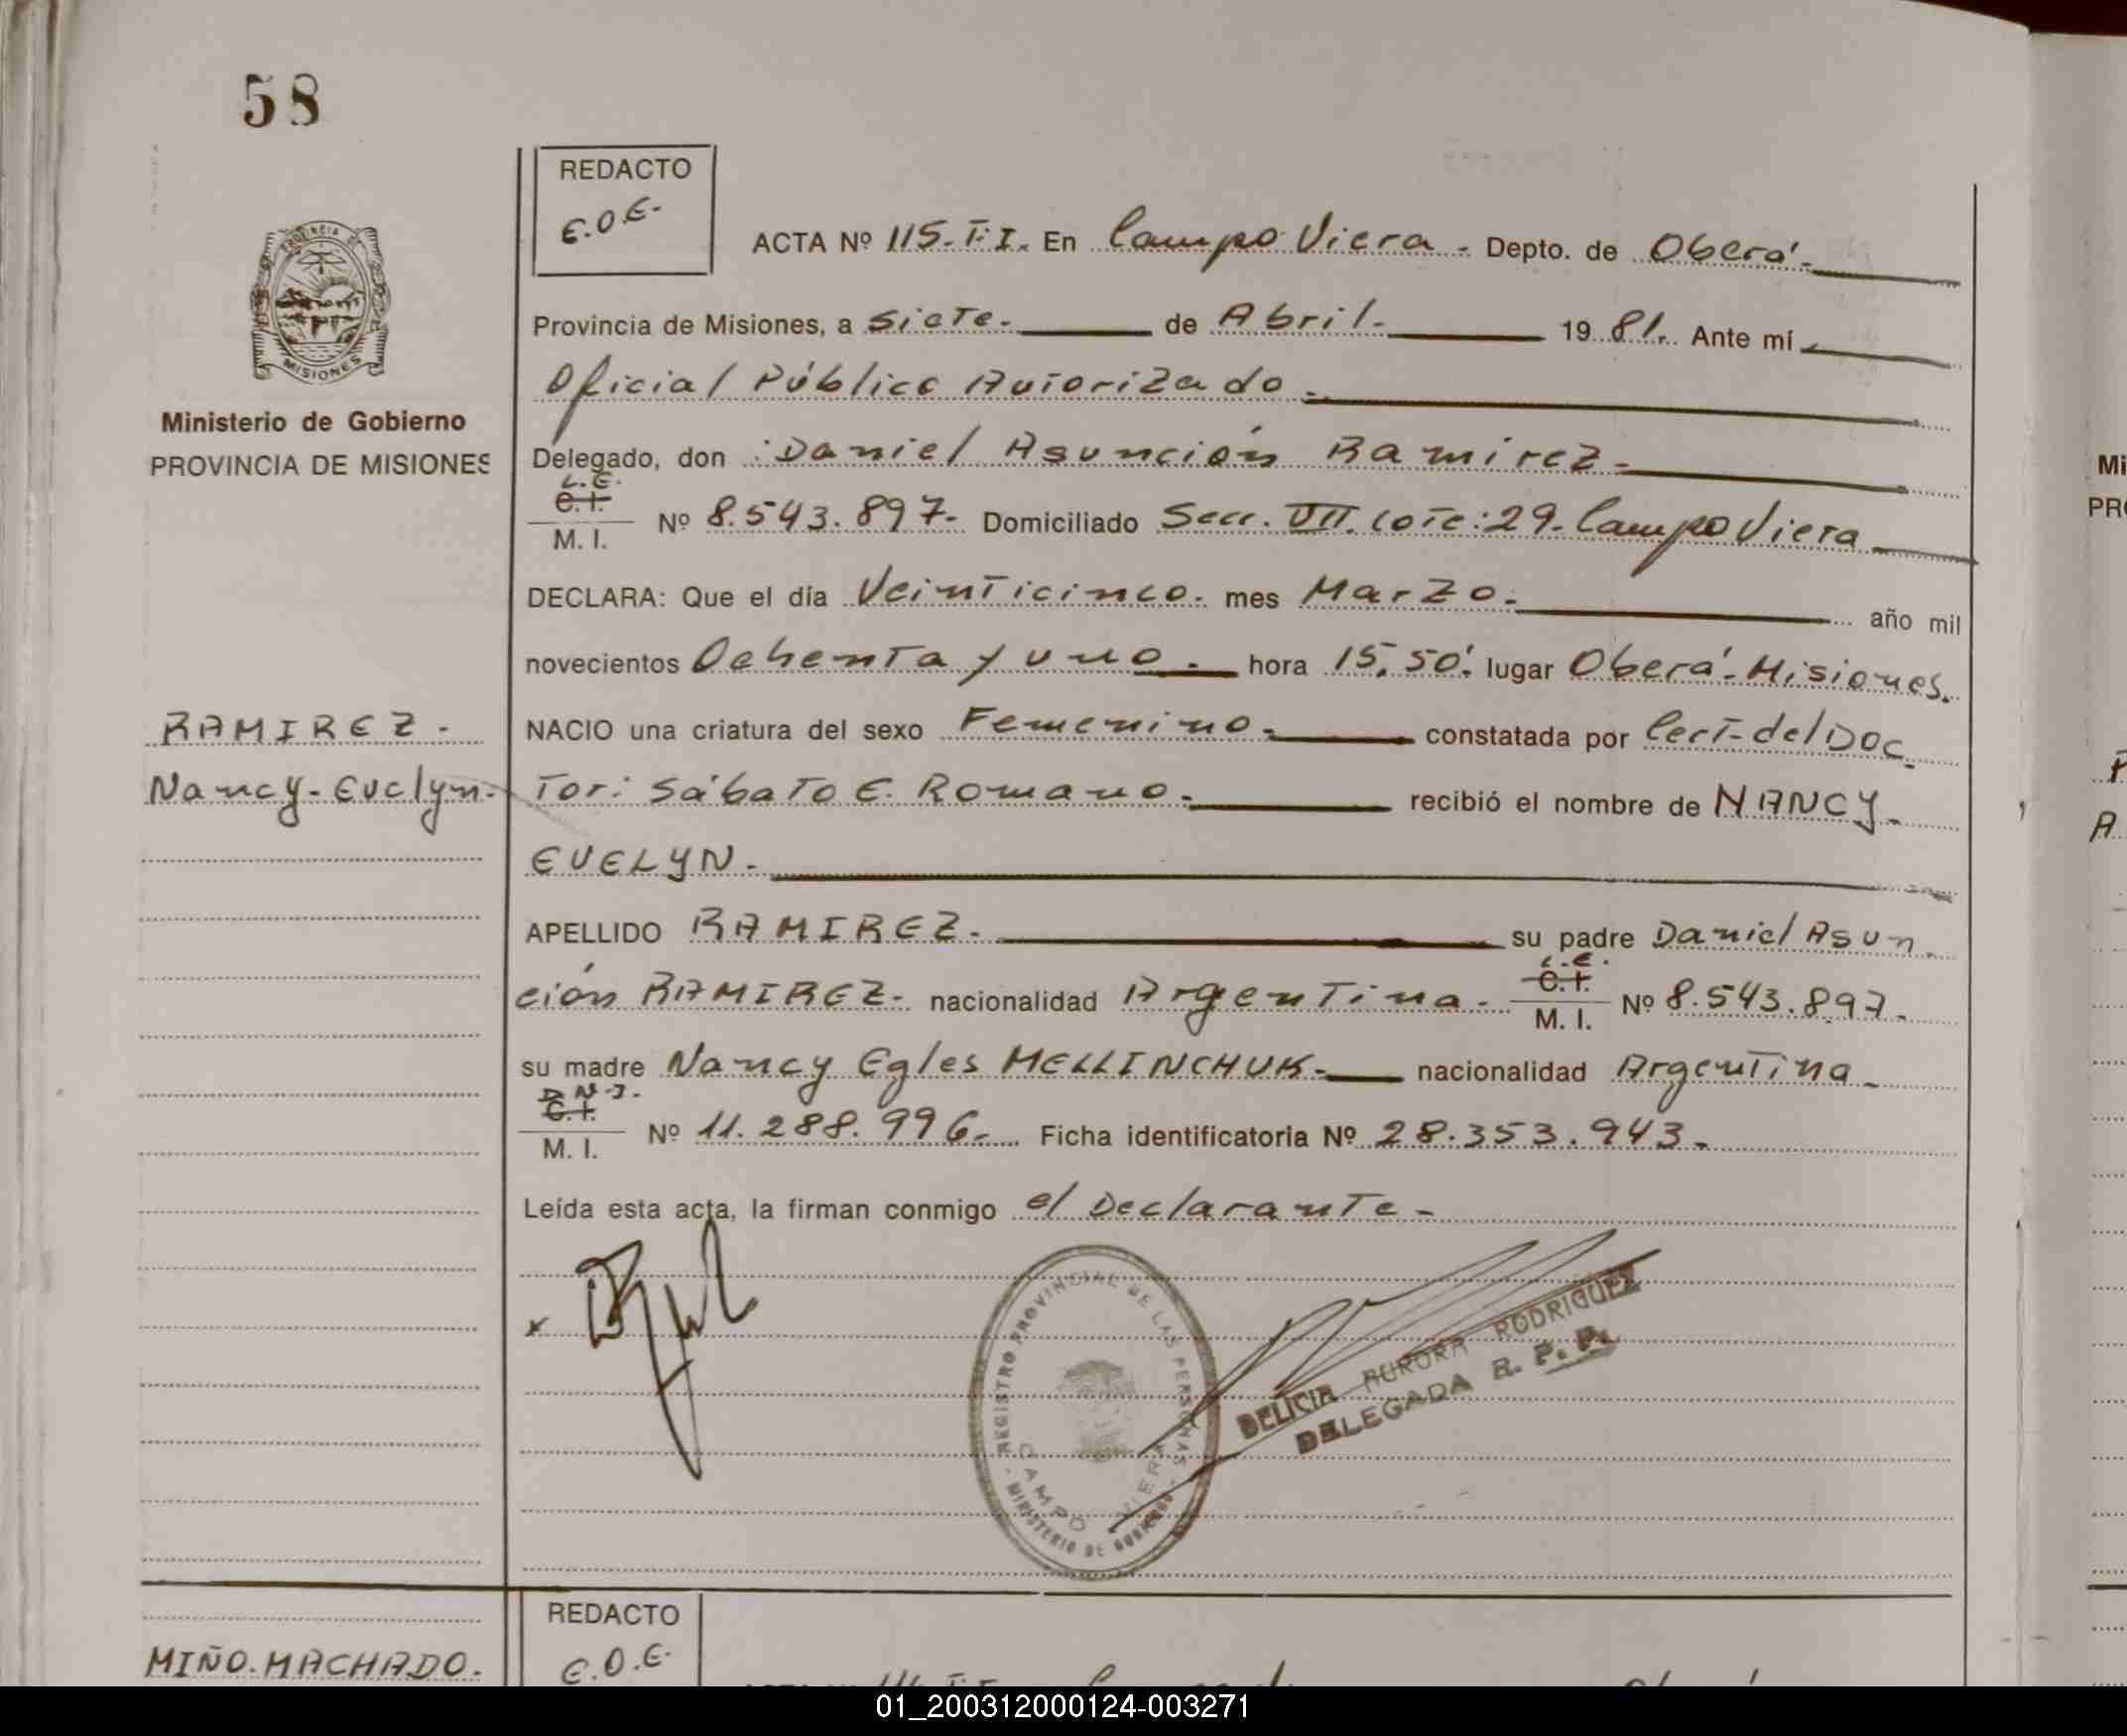 58
REDACTO
E.O.E.
ACTA Nº 115.T.I. En Campo Viera. Depto. de Oberá.
Provincia de Misiones, a Siete. de Abril. 1981. Ante mí
Oficial Público Autorizado.
Ministerio de Gobierno
PROVINCIA DE MISIONES
Delegado, don Daniel Asunción Ramírez.
L.E.
C.I.
M. I. Nº 8.543.897. Domiciliado Secc. VII. Lote: 29. Campo Viera
DECLARA: Que el día Veinticinco. mes Marzo. año mil
novecientos Ochenta y uno. hora 15,50'. lugar Oberá-Misiones.
NACIO una criatura del sexo Femenino. constatada por Cert- del Doc
RAMIREZ.
Nancy-Evelyn.
Tor: Sábato E. Romano. recibió el nombre de NANCY
EVELYN.
APELLIDO RAMIREZ. su padre Daniel Asun
ción RAMIREZ. nacionalidad Argentina. L.E.
C.I.
M. I. Nº 8.543.897.
su madre Nancy Egles MELLINCHUK. nacionalidad Argentina
D.N.I.
C.I.
M. I. Nº 11.288.996. Ficha identificatoria Nº 28.353.943.
Leída esta acta, la firman conmigo el Declarante
REGISTRO PROVINCIAL DE LAS PERSONAS
CAMPO VIERA
MINISTERIO DE GOBIERNO
DELICIA AURORA RODRIGUEZ
DELEGADA R. P. P.
REDACTO
E.O.E.
MIÑO.MACHADO.
Mi
PRO
01_200312000124-003271